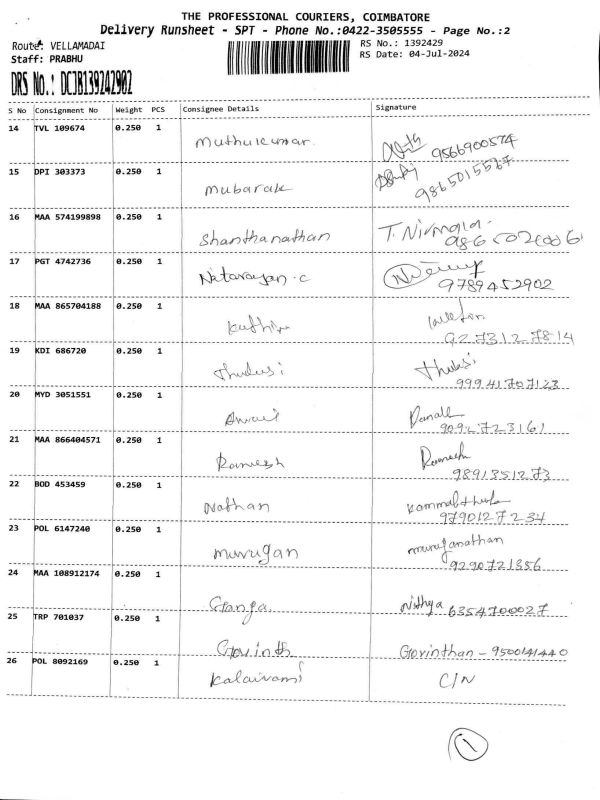 THE PROFESSIONAL COURIERS, COIMBATORE
Delivery Runsheet - SPT - Phone No.:0422-3505555 - Page No.:2
Route: VELLAMADAI
Staff: PRABHU
RS No.: 1392429
RS Date: 04-Jul-2024
DRS No.: DCJB139242902
S No Consignment No Weight PCS Consignee Details Signature
14 TVL 109674 0.250 1 Muthukumar 9566900574
15 DPI 303373 0.250 1 Mubarak 9865015567
16 MAA 574199898 0.250 1 Shanthanathan T. Nirmala.
17 PGT 4742736 0.250 1 Natarayan.c 9789452902
18 MAA 865704188 0.250 1 9273127814
19 KDI 686720 0.250 1 Thulasi Thulasi 99941707123
20 MYD 3051551 0.250 1 9092723161
21 MAA 866404571 0.250 1 Ramesh Ramesh 9891351273
22 BOD 453459 0.250 1 Nathan 9790127234
23 POL 6147240 0.250 1 Murugan Muruganathan 9290721356
24 MAA 108912174 0.250 1 Ganga Nithya 6354700027
25 TRP 701037 0.250 1 Govinth Govinthan - 9500141440
26 POL 8092169 0.250 1 Kalaivani C/N
1